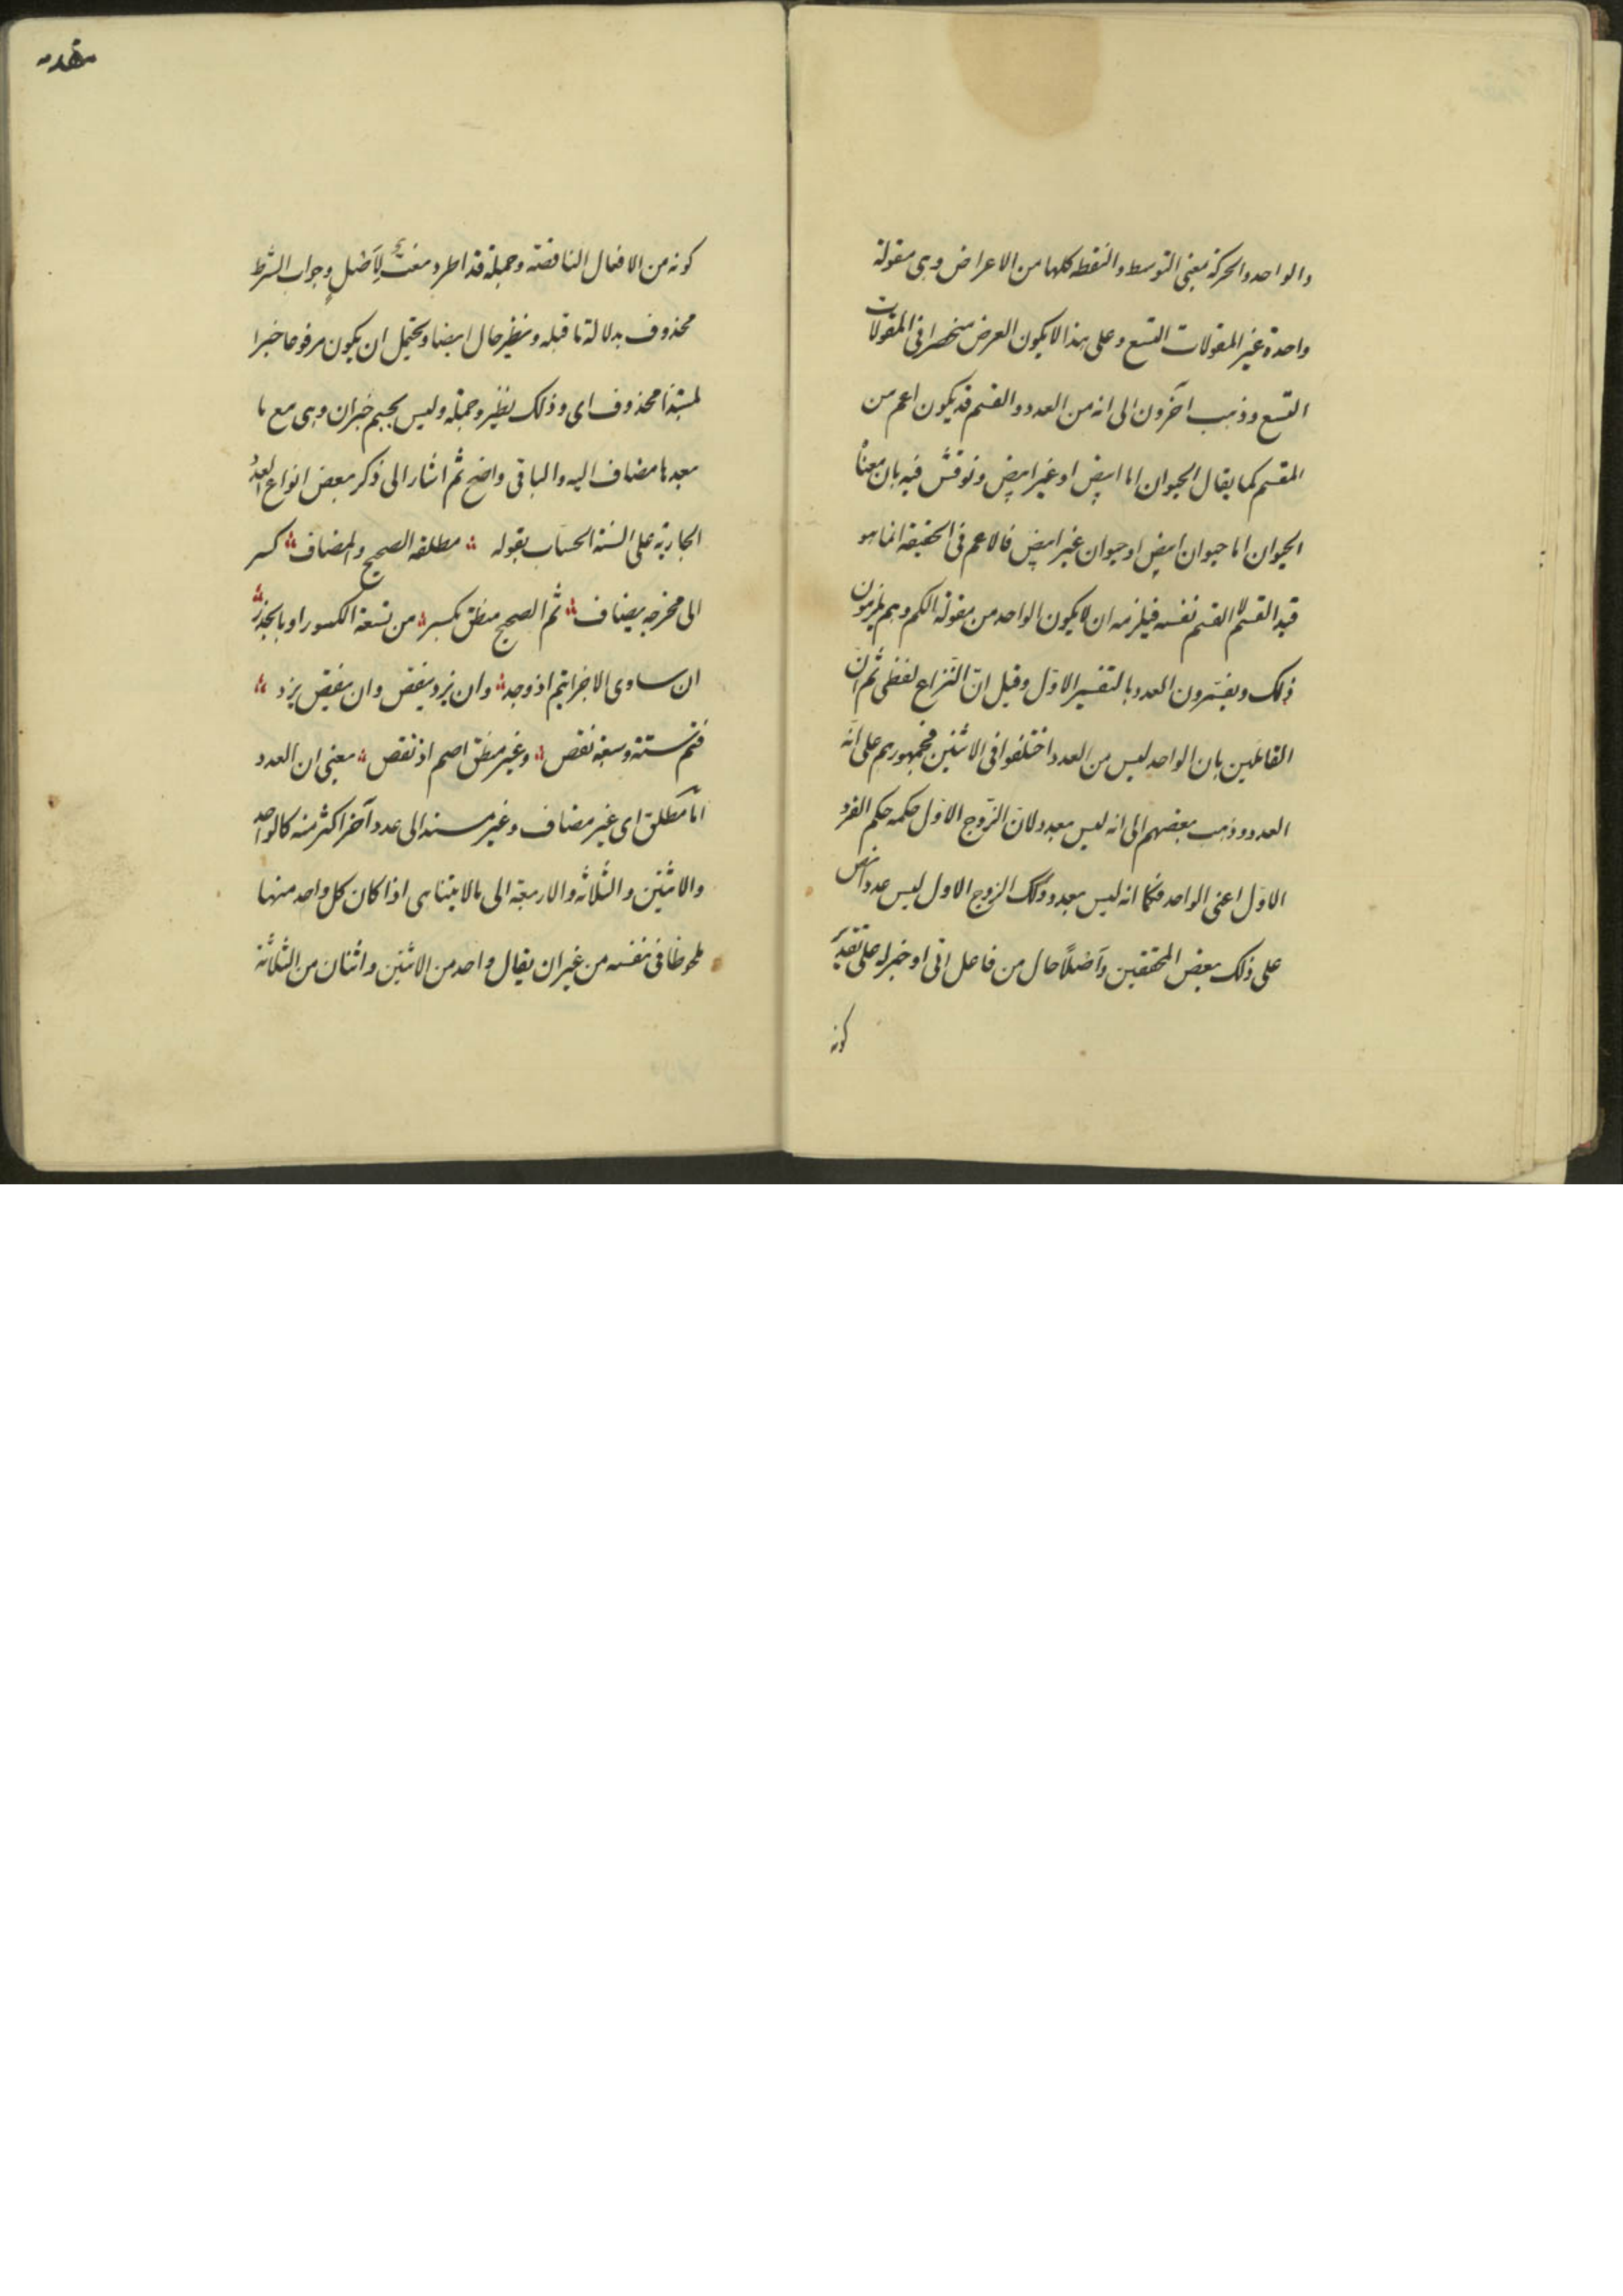 والواحد والحركة بمعنى التوسط والنقطه كلها من الاعراض وهى مقولة
واحدة غير المقولات التسع وعلى هذا لا يكون العرض منحصرا فى المقولات
التسع وذهب آخرون الى انه من العدد والقسم قد يكون اعم من
المقسم كما يقال الحيوان اما ابيض او غير ابيض ونوقش فيه بان معناه
الحيوان اما حيوان ابيض او حيوان غير ابيض فالاعم فى الحقيقة انما هو
قيد القسم لا القسم نفسه فيلزمه ان لا يكون الواحد من مقولة الكم وهم يلزمون
ذلك ويفسّرون العدد بالتفسير الاوّل وقيل انّ النّزاع لفظى ثم انّ
القائلين بان الواحد ليس من العدد اختلفوا فى الاثنين فجمهورهم على انّه
العدد وذهب بعضهم الى انه ليس بعدد لانّ الزّوج الاوّل حكمه حكم الفرد
الاوّل اعنى الواحد فكما انه ليس بعدد وكذلك الزوج الاول ليس عددا نص
على ذلك بعض المحققين وآضلًا حال من فاعل اتى او خبر له على تقدير
كونه
مقدمه
كونه من الافعال الناقصة وجملة قد اطرد نعت لآضل وجواب الشرط
محذوف بدلالة ما قبله ونظير حال ايضا ويحتمل ان يكون مرفوعا خبرا
لمبتدأ محذوف اى وذلك نظير وجملة وليس بجيم خبران وهى مع ما
بعدها مضاف اليه والباقى واضح ثم اشار الى ذكر بعض انواع العدد
الجارية على السنة الحساب بقوله ؞ مطلقه الصحيح والمضاف ؞ كسر
الى مخرجه يضاف ؞ ثم الصحيح منطق بكسر ؞ من تسعة الكسور او بالجذر ؞
ان ساوى الاجزا يتم اذ وجد ؞ وان يزد ينقص وان ينقص يزد ؞
فتم ستة وسبعة نقص ؞ وغير منطق اصم اذ نقص ؞ يعنى ان العدد
امّا مطلق اى غير مضاف وغير مسند الى عدد آخر اكثر منه كالواحد
والاثنين والثلاثه والاربعة الى مالا يتناهى اذا كان كل واحد منها
ملحوظا فى نفسه من غير ان يقال واحد من الاثنين واثنان من الثلاثة